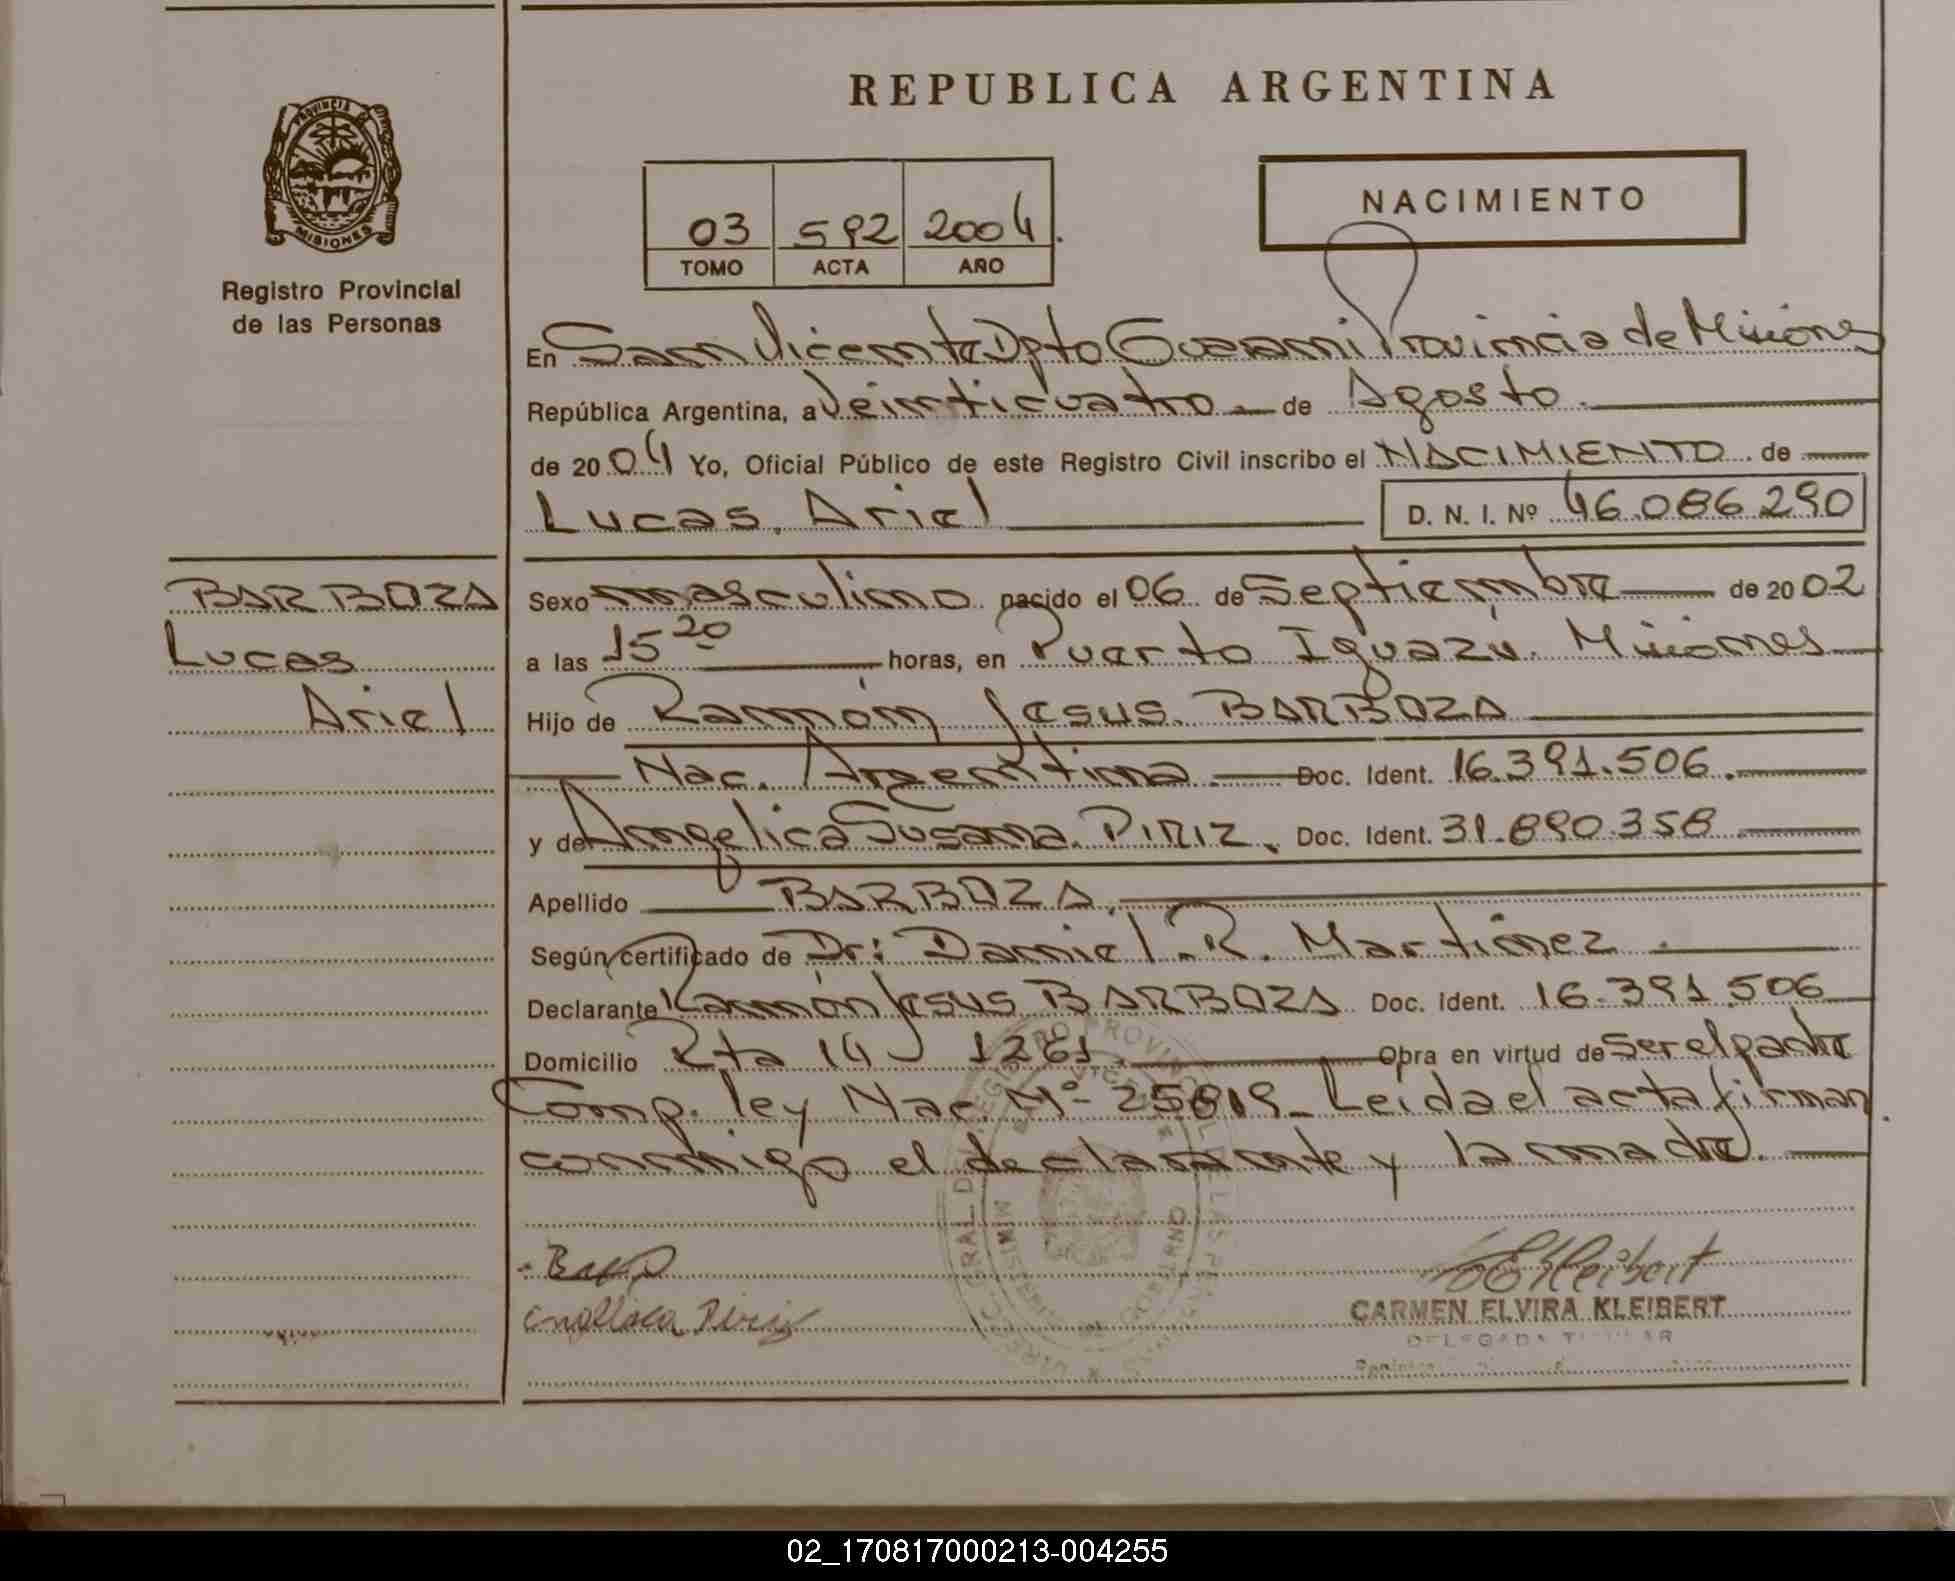 REPUBLICA ARGENTINA
PROVINCIA DE
MISIONES
Registro Provincial
de las Personas
03 592 2004
TOMO ACTA AÑO
NACIMIENTO
En San Vicente Dpto Guaraní Provincia de Misiones
República Argentina, a Veinticuatro de Agosto.
de 2004 Yo, Oficial Público de este Registro Civil inscribo el NACIMIENTO de
Lucas Ariel
D. N. I. Nº 46.086.290
BARBOZA
Lucas
Ariel
Sexo masculino nacido el 06 de Septiembre de 2002
a las 15 20 horas, en Puerto Iguazú. Misiones
Hijo de Ramón Jesus BARBOZA
Nac. Argentina Doc. Ident. 16.391.506.
y de Angelica Susana PIRIZ, Doc. Ident. 31.890.358
Apellido BARBOZA.
Según certificado de Dr: Daniel R. Martinez
Declarante Ramón Jesus BARBOZA Doc. Ident. 16.391.506
Domicilio Rta 14 1261 Obra en virtud de Ser el padre
Comp. ley Nac. Nº 25819_ Leída el acta firman
conmigo el declarante y la madre.
CARMEN ELVIRA KLEIBERT
DELEGADA TITULAR
02_170817000213-004255